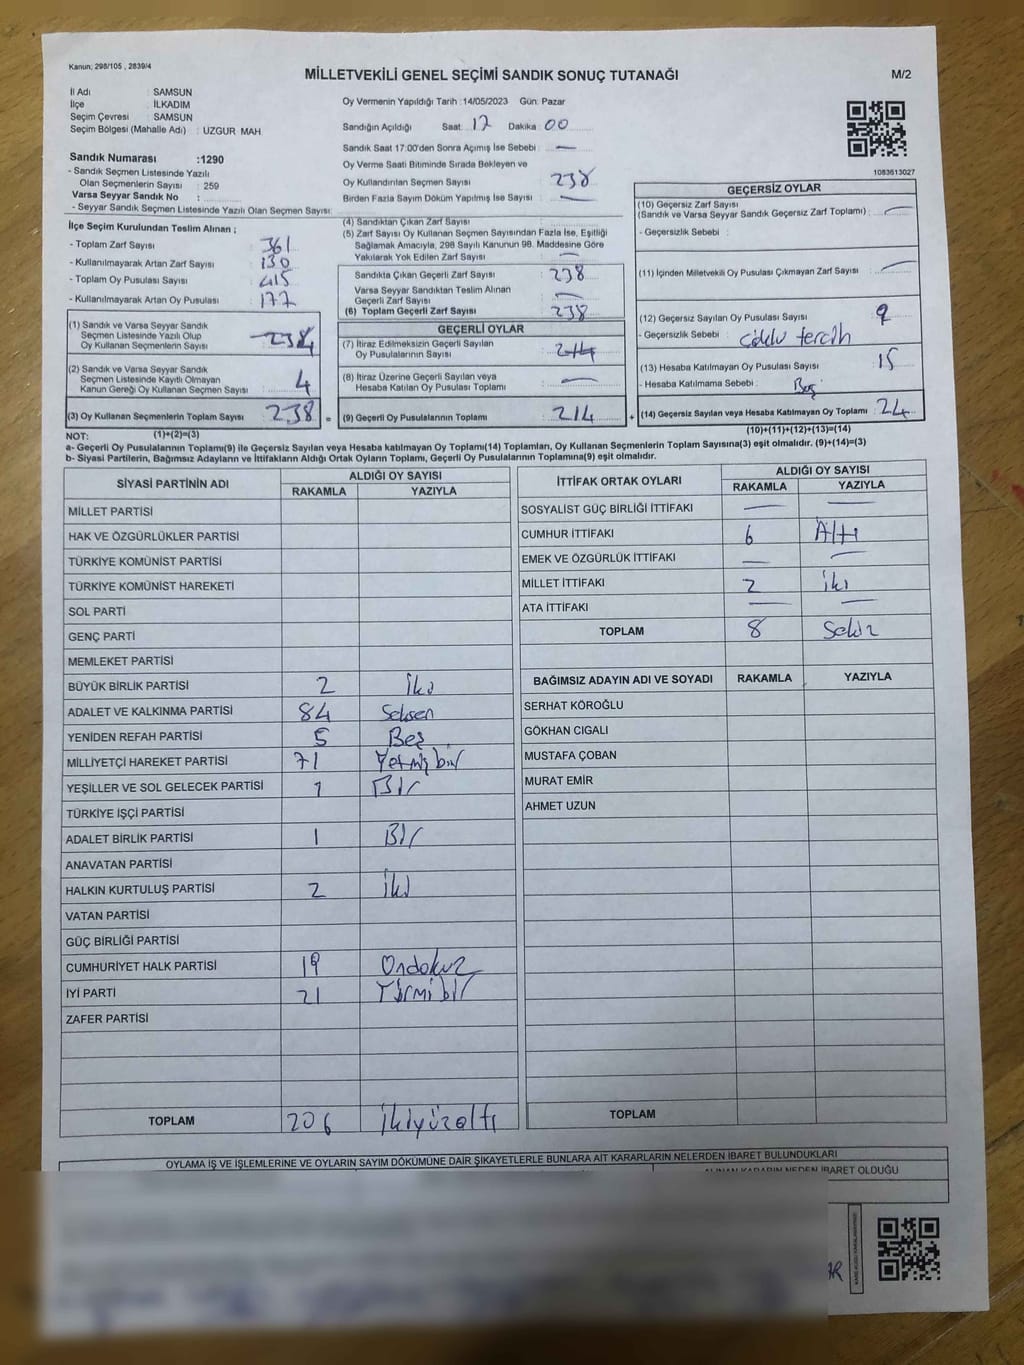 Kanun; 298/105 , 2839/4
MİLLETVEKİLİ GENEL SEÇİMİ SANDIK SONUÇ TUTANAĞI
M/2
İl Adı : SAMSUN
İlçe : İLKADIM
Seçim Çevresi : SAMSUN
Seçim Bölgesi (Mahalle Adı) : UZGUR MAH.
Sandık Numarası :1290
- Sandık Seçmen Listesinde Yazılı
Olan Seçmenlerin Sayısı : 259
Varsa Seyyar Sandık No :
- Seyyar Sandık Seçmen Listesinde Yazılı Olan Seçmen Sayısı:
Oy Vermenin Yapıldığı Tarih :14/05/2023 Gün: Pazar
Sandığın Açıldığı Saat: 17 Dakika 00
Sandık Saat 17:00'den Sonra Açımış İse Sebebi : —
Oy Verme Saati Bitiminde Sırada Bekleyen ve
Oy Kullandırılan Seçmen Sayısı : 238
Birden Fazla Sayım Döküm Yapılmış İse Sayısı : —
1083613027
İlçe Seçim Kurulundan Teslim Alınan ;
- Toplam Zarf Sayısı : 361
- Kullanılmayarak Artan Zarf Sayısı : 130
- Toplam Oy Pusulası Sayısı : 415
- Kullanılmayarak Artan Oy Pusulası : 177
(1) Sandık ve Varsa Seyyar Sandık
Seçmen Listesinde Yazılı Olup
Oy Kullanan Seçmenlerin Sayısı : 234
(2) Sandık ve Varsa Seyyar Sandık
Seçmen Listesinde Kayıtlı Olmayan
Kanun Gereği Oy Kullanan Seçmen Sayısı : 4
(3) Oy Kullanan Seçmenlerin Toplam Sayısı : 238
(4) Sandıktan Çıkan Zarf Sayısı :
(5) Zarf Sayısı Oy Kullanan Seçmen Sayısından Fazla İse, Eşitliği
Sağlamak Amacıyla, 298 Sayılı Kanunun 98. Maddesine Göre
Yakılarak Yok Edilen Zarf Sayısı : —
Sandıkta Çıkan Geçerli Zarf Sayısı : 238
Varsa Seyyar Sandıktan Teslim Alınan
Geçerli Zarf Sayısı : —
(6) Toplam Geçerli Zarf Sayısı : 238
GEÇERLİ OYLAR
(7) İtiraz Edilmeksizin Geçerli Sayılan
Oy Pusulalarının Sayısı : 214
(8) İtiraz Üzerine Geçerli Sayılan veya
Hesaba Katılan Oy Pusulası Toplamı : —
= (9) Geçerli Oy Pusulalarının Toplamı : 214
GEÇERSİZ OYLAR
(10) Geçersiz Zarf Sayısı
(Sandık ve Varsa Seyyar Sandık Geçersiz Zarf Toplamı) : —
- Geçersizlik Sebebi :
(11) İçinden Milletvekili Oy Pusulası Çıkmayan Zarf Sayısı : —
(12) Geçersiz Sayılan Oy Pusulası Sayısı : 9
- Geçersizlik Sebebi : çoklu tercih
(13) Hesaba Katılmayan Oy Pusulası Sayısı : 15
- Hesaba Katılmama Sebebi : Boş
+ (14) Geçersiz Sayılan veya Hesaba Katılmayan Oy Toplamı : 24
NOT: (1)+(2)=(3)
(10)+(11)+(12)+(13)=(14)
a- Geçerli Oy Pusulalarının Toplamı(9) ile Geçersiz Sayılan veya Hesaba katılmayan Oy Toplamı(14) Toplamları, Oy Kullanan Seçmenlerin Toplam Sayısına(3) eşit olmalıdır. (9)+(14)=(3)
b- Siyasi Partilerin, Bağımsız Adayların ve İttifakların Aldığı Ortak Oyların Toplamı, Geçerli Oy Pusulalarının Toplamına(9) eşit olmalıdır.
SİYASİ PARTİNİN ADI
ALDIĞI OY SAYISI
RAKAMLA YAZIYLA
MİLLET PARTİSİ
HAK VE ÖZGÜRLÜKLER PARTİSİ
TÜRKİYE KOMÜNİST PARTİSİ
TÜRKİYE KOMÜNİST HAREKETİ
SOL PARTİ
GENÇ PARTİ
MEMLEKET PARTİSİ
BÜYÜK BİRLİK PARTİSİ 2 İki
ADALET VE KALKINMA PARTİSİ 84 Seksen
YENİDEN REFAH PARTİSİ 5 Beş
MİLLİYETÇİ HAREKET PARTİSİ 71 Yetmiş bir
YEŞİLLER VE SOL GELECEK PARTİSİ 1 Bir
TÜRKİYE İŞÇİ PARTİSİ
ADALET BİRLİK PARTİSİ 1 Bir
ANAVATAN PARTİSİ
HALKIN KURTULUŞ PARTİSİ 2 İki
VATAN PARTİSİ
GÜÇ BİRLİĞİ PARTİSİ
CUMHURİYET HALK PARTİSİ 19 Ondokuz
İYİ PARTİ 21 Yirmi bir
ZAFER PARTİSİ
TOPLAM 206 İkiyüzaltı
İTTİFAK ORTAK OYLARI
ALDIĞI OY SAYISI
RAKAMLA YAZIYLA
SOSYALİST GÜÇ BİRLİĞİ İTTİFAKI — —
CUMHUR İTTİFAKI 6 Altı
EMEK VE ÖZGÜRLÜK İTTİFAKI — —
MİLLET İTTİFAKI 2 İki
ATA İTTİFAKI — —
TOPLAM 8 Sekiz
BAĞIMSIZ ADAYIN ADI VE SOYADI RAKAMLA YAZIYLA
SERHAT KÖROĞLU
GÖKHAN CIGALI
MUSTAFA ÇOBAN
MURAT EMİR
AHMET UZUN
TOPLAM
OYLAMA İŞ VE İŞLEMLERİNE VE OYLARIN SAYIM DÖKÜMÜNE DAİR ŞİKAYETLERLE BUNLARA AİT KARARLARIN NELERDEN İBARET BULUNDUKLARI
ALINAN KARARIN NEDEN İBARET OLDUĞU